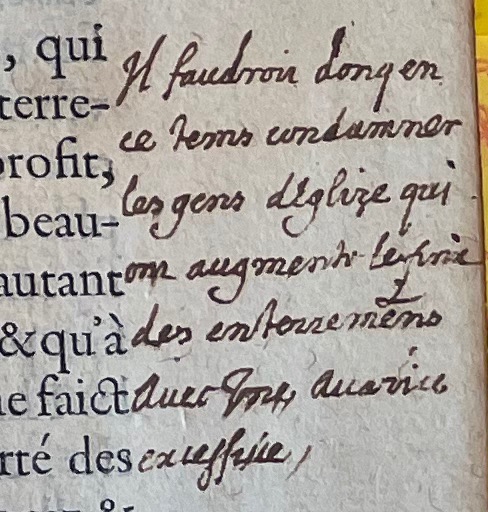 , qui
terre-
profit,
beau-
autant
&qu'à
ne faict
rté des
Il faudroit donq en
ce tems condamner
les gens d'églize qui
ont augmenté le prix
des enterremens
avec une avarice
excessive,